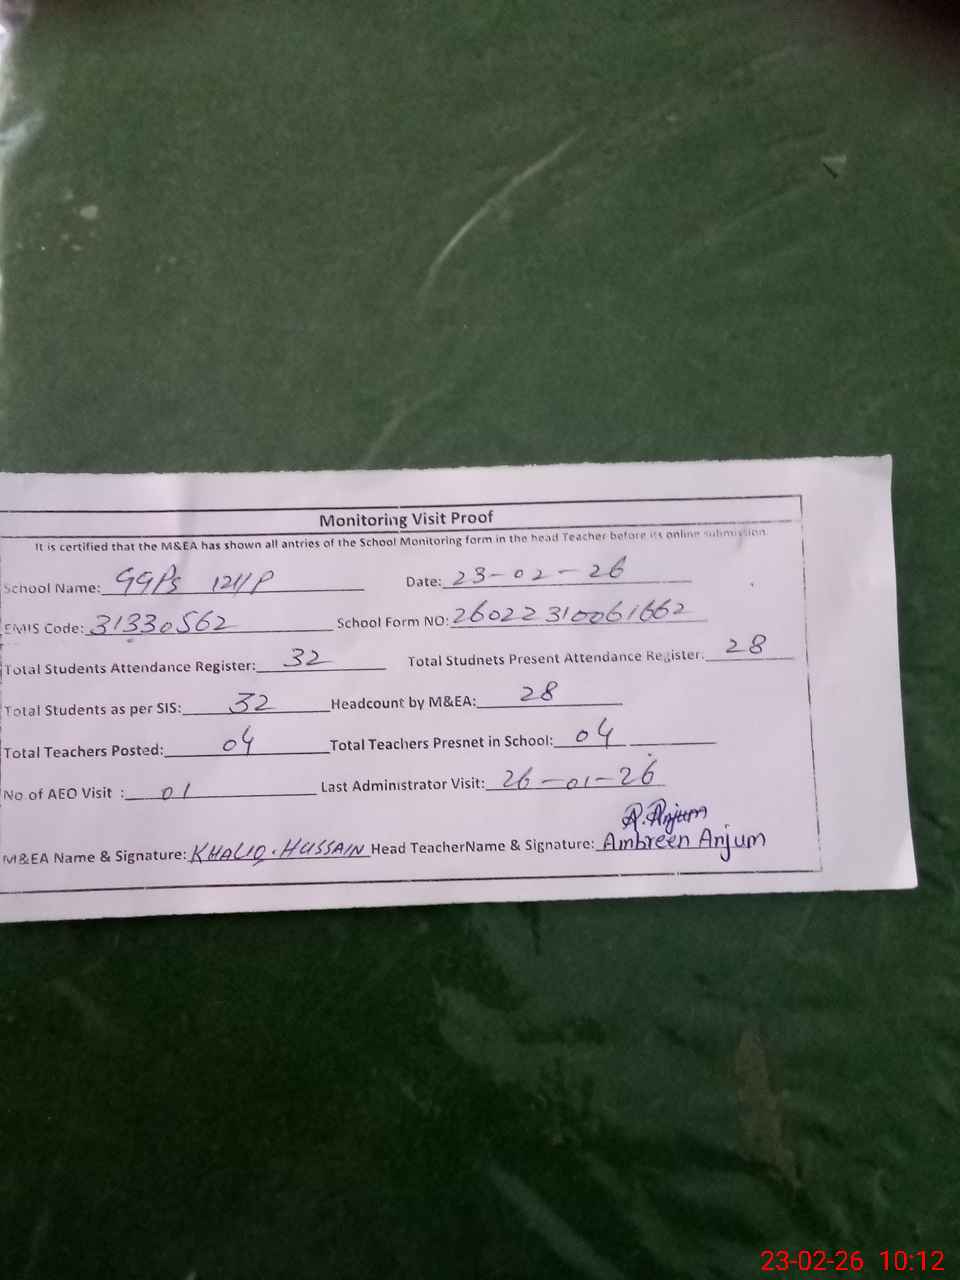 Monitoring Visit Proof
It is certified that the M&EA has shown all antries of the School Monitoring form in the head Teacher before its online submission
School Name: GGPS 121/P Date: 23-02-26
EMIS Code: 31330562 School Form NO: 26022310061662
Total Students Attendance Register: 32 Total Studnets Present Attendance Register: 28
Total Students as per SIS: 32 Headcount by M&EA: 28
Total Teachers Posted: 04 Total Teachers Presnet in School: 04
No of AEO Visit : 01 Last Administrator Visit: 26-01-26
A. Anjum
M&EA Name & Signature: KHALIQ. HUSSAIN Head TeacherName & Signature: Ambreen Anjum
23-02-26 10:12